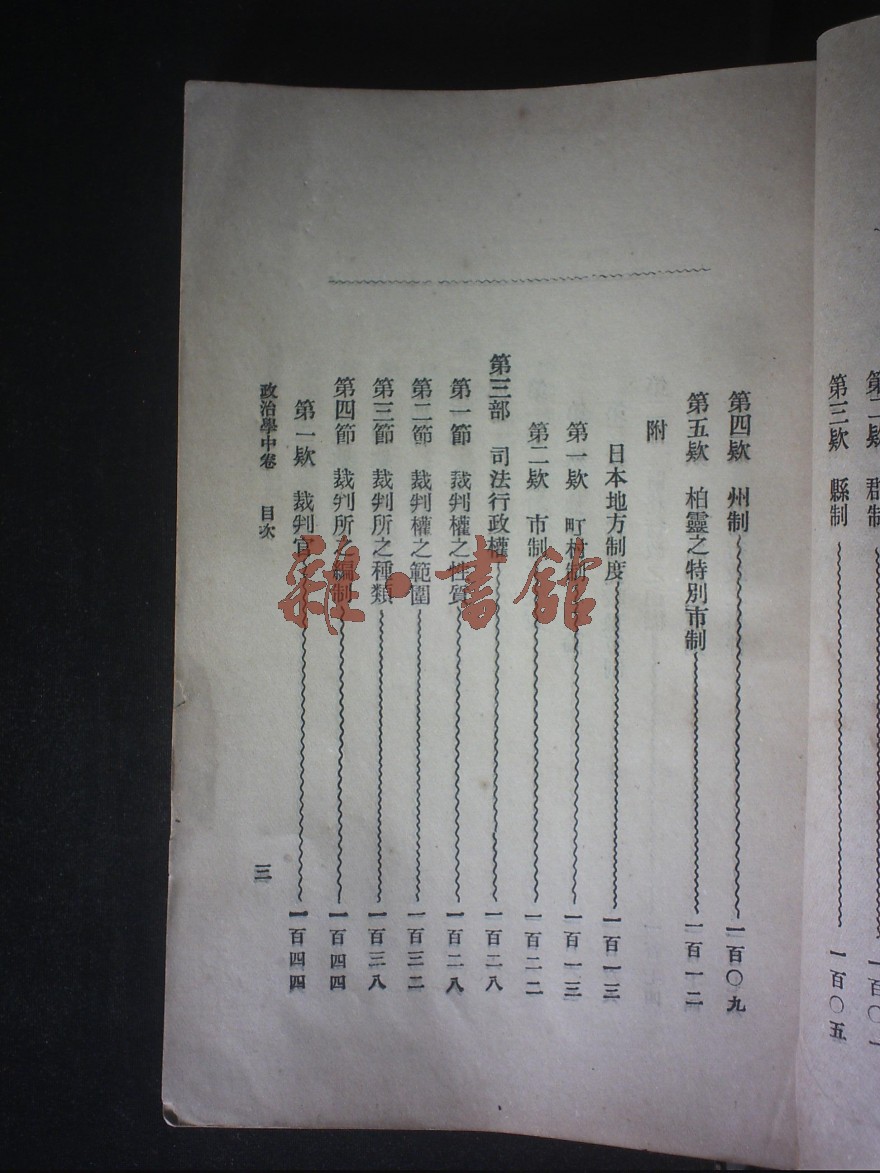 第二欵 郡制 一百〇一
第三欵 縣制 一百〇五
第四欵 州制 一百〇九
第五欵 柏靈之特別市制 一百一二
附
日本地方制度 一百一三
第一欵 町村制 一百一三
第二欵 市制 一百二二
第三部 司法行政權 一百二八
第一節 裁判權之性質 一百二八
第二節 裁判權之範圍 一百三二
第三節 裁判所之種類 一百三八
第四節 裁判所之編制 一百四四
第一欵 裁判官 一百四四
政治學中卷 目次 三
雜·書館